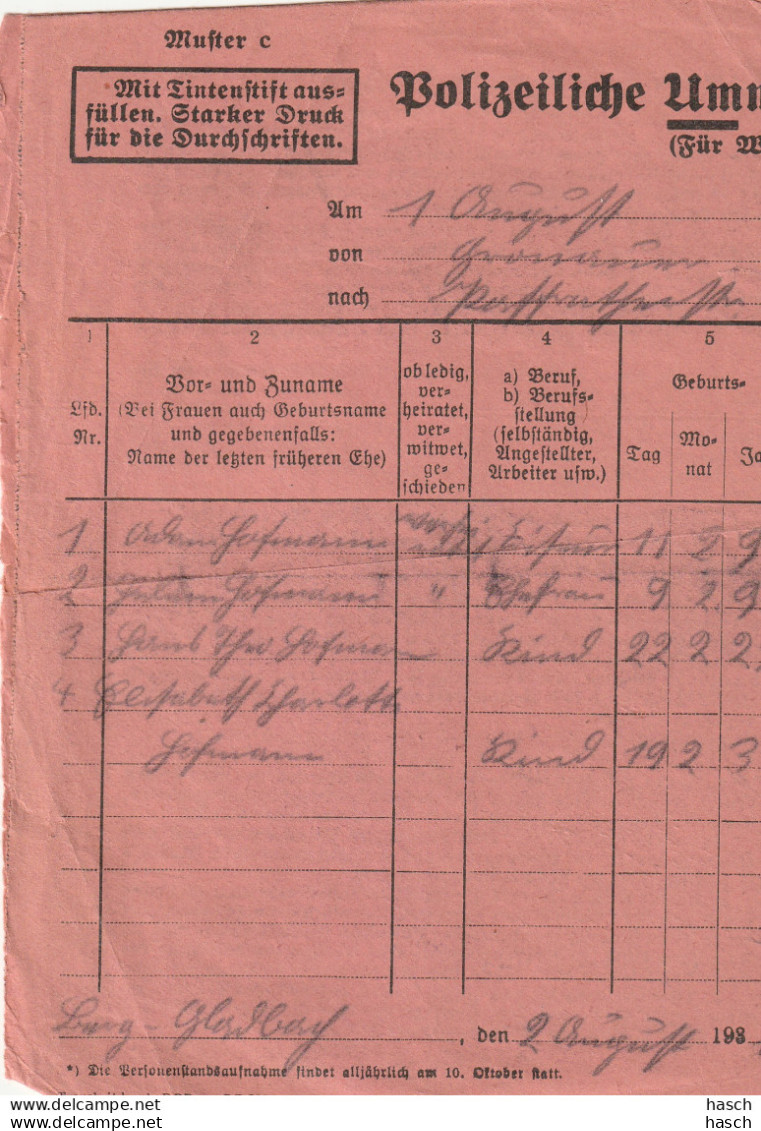 Muster c
Mit Tintenstift aus-
füllen. Starker Druck
für die Durchschriften.
Polizeiliche Umm
(Für W
Am 1 August
von Gronauer
nach
1 2 3 4 5
Lfd.
Nr.
Vor- und Zuname
(Bei Frauen auch Geburtsname
und gegebenenfalls:
Name der letzten früheren Ehe)
ob ledig,
ver-
heiratet,
ver-
witwet,
ge-
schieden
a) Beruf,
b) Berufs-
stellung
(selbständig,
Angestellter,
Arbeiter usw.)
Geburts-
Tag
Mo-
nat
Ja
1 Adam Hofmann 11 2 9
2 Hofmann " Ehefrau 9 2 9
3 Hans Theo Hofmann Kind 22 2 2
4 Elisabeth Charlotte
Hofmann Kind 19 2 3
Berg-Gladbach, den 2 August 193
*) Die Personenstandsaufnahme findet alljährlich am 10. Oktober statt.
hasch
hasch